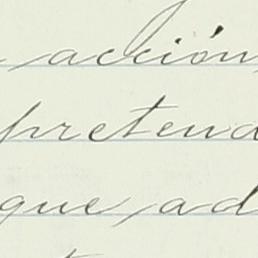 acción
pretend
que ad